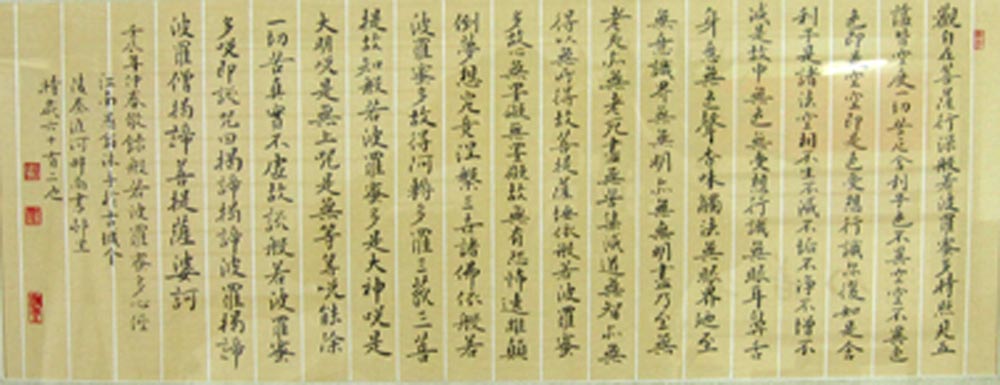 觀自在菩薩行深般若波羅蜜多時照見五
蘊皆空度一切苦厄舍利子色不異空空不異色
色即是空空即是色受想行識亦復如是舍
利子是諸法空相不生不滅不垢不淨不增不
減是故中無色無受想行識無眼耳鼻舌
身意無色聲香味觸法無眼界乃至
無意識界無無明亦無無明盡乃至無
老死亦無老死盡無苦集滅道無智亦無
得以無所得故菩提薩埵依般若波羅蜜
多故心無罣礙無罣礙故無有恐怖遠離顛
倒夢想究竟涅槃三世諸佛依般若
波羅蜜多故得阿耨多羅三藐三菩
提故知般若波羅蜜多是大神咒是
大明咒是無上咒是無等等咒能除
一切苦真實不虛故說般若波羅蜜
多咒即說咒曰揭諦揭諦波羅揭諦
波羅僧揭諦菩提薩婆訶
年仲春敬錄般若波羅蜜多心經
時歲六十有二也